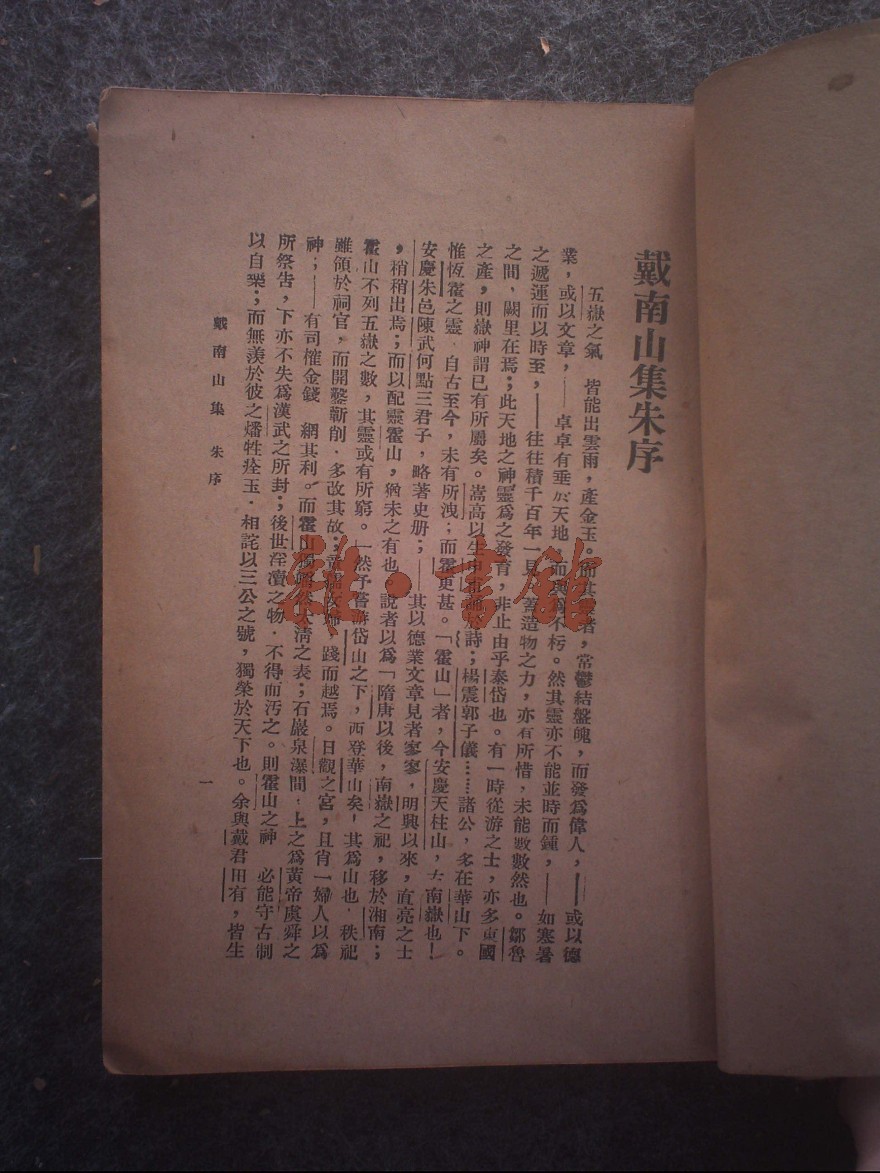 戴南山集朱序
五嶽之氣　皆能出雲雨，產金玉。而其　者，常鬱結盤魄，而發爲偉人，——或以德
業，或以文章，——卓卓有垂於天地　而與　不朽。然其靈亦不能並時而鍾，——如寒暑
之遞運而以時至，——往往積千百年一見　蓋造物之力，亦有所惜，未能數數然也。鄒魯
之間，闕里在焉；此天地之神靈爲之發育，非止由乎泰岱也。有一時從游之士，亦多東國
之產，則嶽神謂已有所屬矣。嵩高以生申甫　於詩；楊震郭子儀……諸公，多在華山下。
惟恆霍之靈　自古至今，未有所洩；而霍更甚。「霍山」者，今安慶天柱山，古南嶽也！
安慶朱邑陳武何點三君子，略著史册；——其以德業文章見者寥寥，明興以來，直亮之士
，稍稍出焉；而以配靈霍山，猶未之有也。說者以爲「隋唐以後，南嶽之祀，移於湘南；
霍山不列五嶽之數，其靈或有所窮。」然予嘗游岱山之下，西登華山矣，其爲山也，秩祀
雖領於祠官，而開鑿斬削．多改其故；　　女歸，踐而越焉。日觀之宮，且肖一婦人以爲
神；——有司榷金錢　網其利。而霍山　　然太清之表；石巖泉瀑間，上之爲黃帝虞舜之
所祭告，下亦不失爲漢武之所封；後世淫瀆之物．不得而汚之。則霍山之神　必能守古制
以自樂；而無羨於彼之燔牲瘞玉．相詫以三公之號，獨榮於天下也。余與戴君田有，皆生
戴南山集　朱序
一
雜·書館